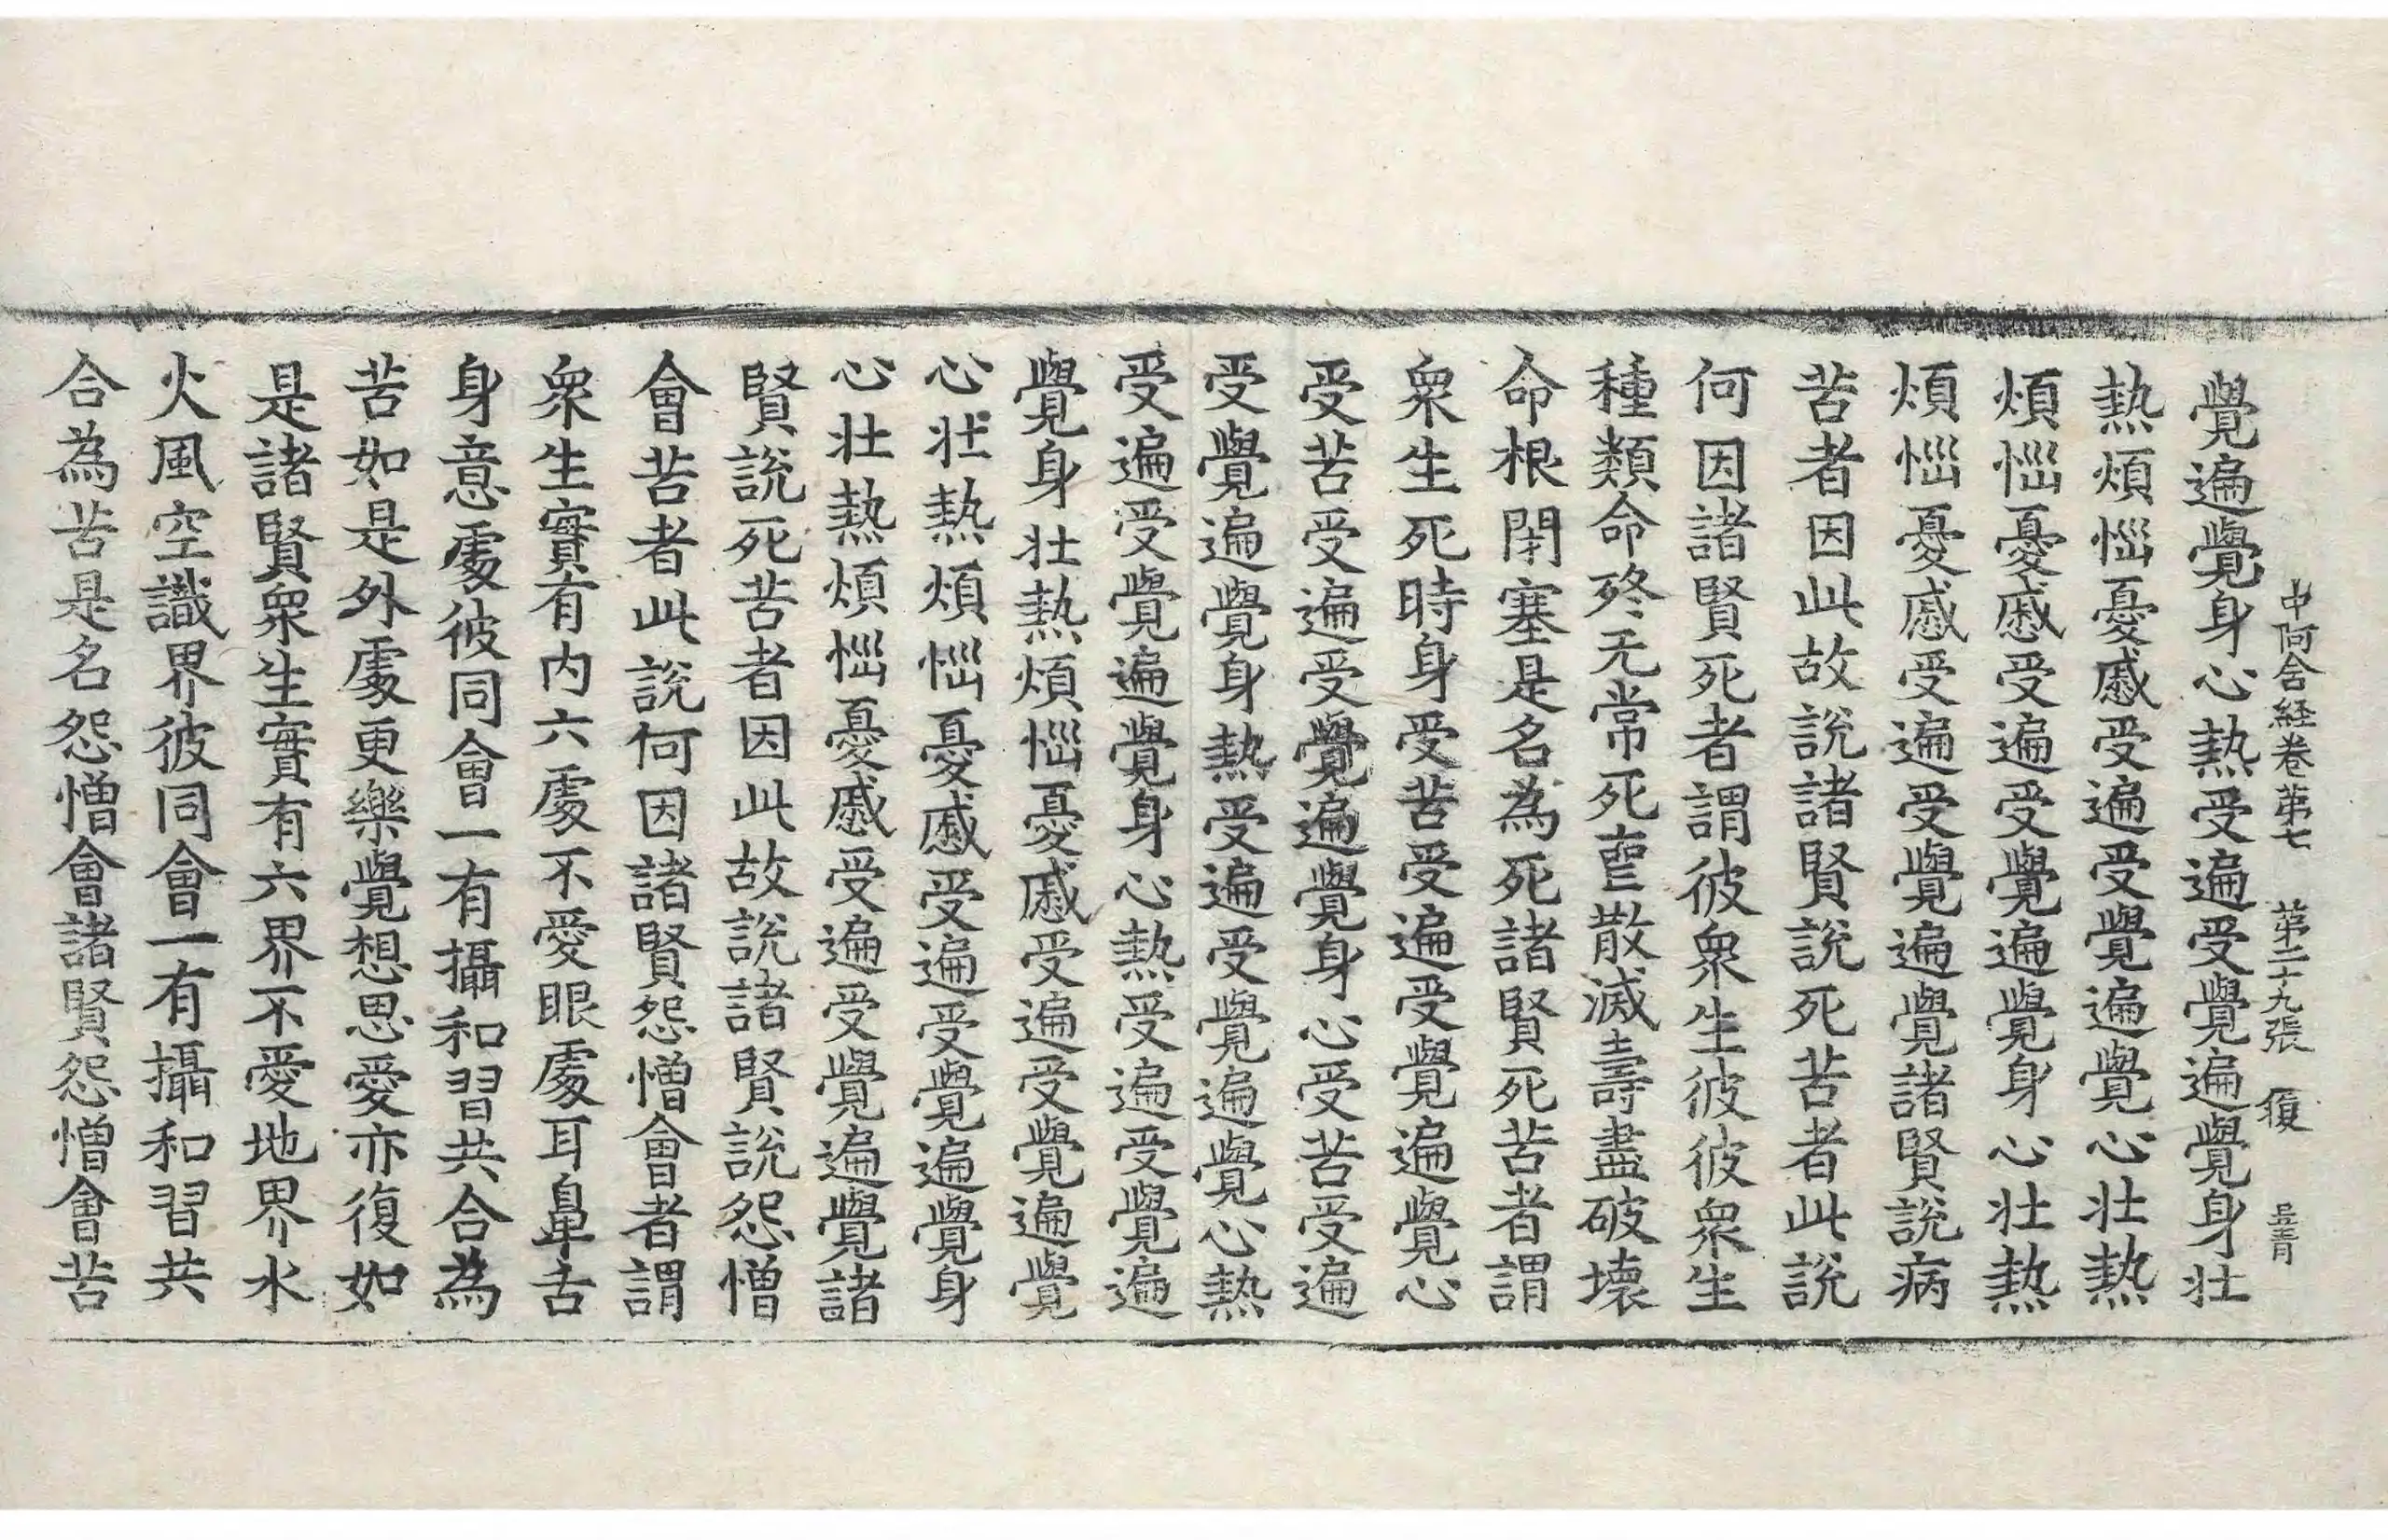 中阿含経卷第七　第二十九張　履　孟青
覺遍覺身心熱受遍受覺遍覺身壯
熱煩惱憂慼受遍受覺遍覺心壯熱
煩惱憂慼受遍受覺遍覺身心壯熱
煩惱憂慼受遍受覺遍覺諸賢說病
苦者因此故說諸賢說死苦者此說
何因諸賢死者謂彼衆生彼彼衆生
種類命終无常死喪散滅壽盡破壞
命根閉塞是名為死諸賢死苦者謂
衆生死時身受苦受遍受覺遍覺心
受苦受遍受覺遍覺身心受苦受遍
受覺遍覺身熱受遍受覺遍覺心熱
受遍受覺遍覺身心熱受遍受覺遍
覺身壯熱煩惱憂慼受遍受覺遍覺
心壯熱煩惱憂慼受遍受覺遍覺身
心壯熱煩惱憂慼受遍受覺遍覺諸
賢說死苦者因此故說諸賢說怨憎
會苦者此說何因諸賢怨憎會者謂
衆生實有内六處不愛眼處耳鼻舌
身意處彼同會一有攝和習共合為
苦如是外處更樂覺想思愛亦復如
是諸賢衆生實有六界不愛地界水
火風空識界彼同會一有攝和習共
合為苦是名怨憎會諸賢怨憎會苦